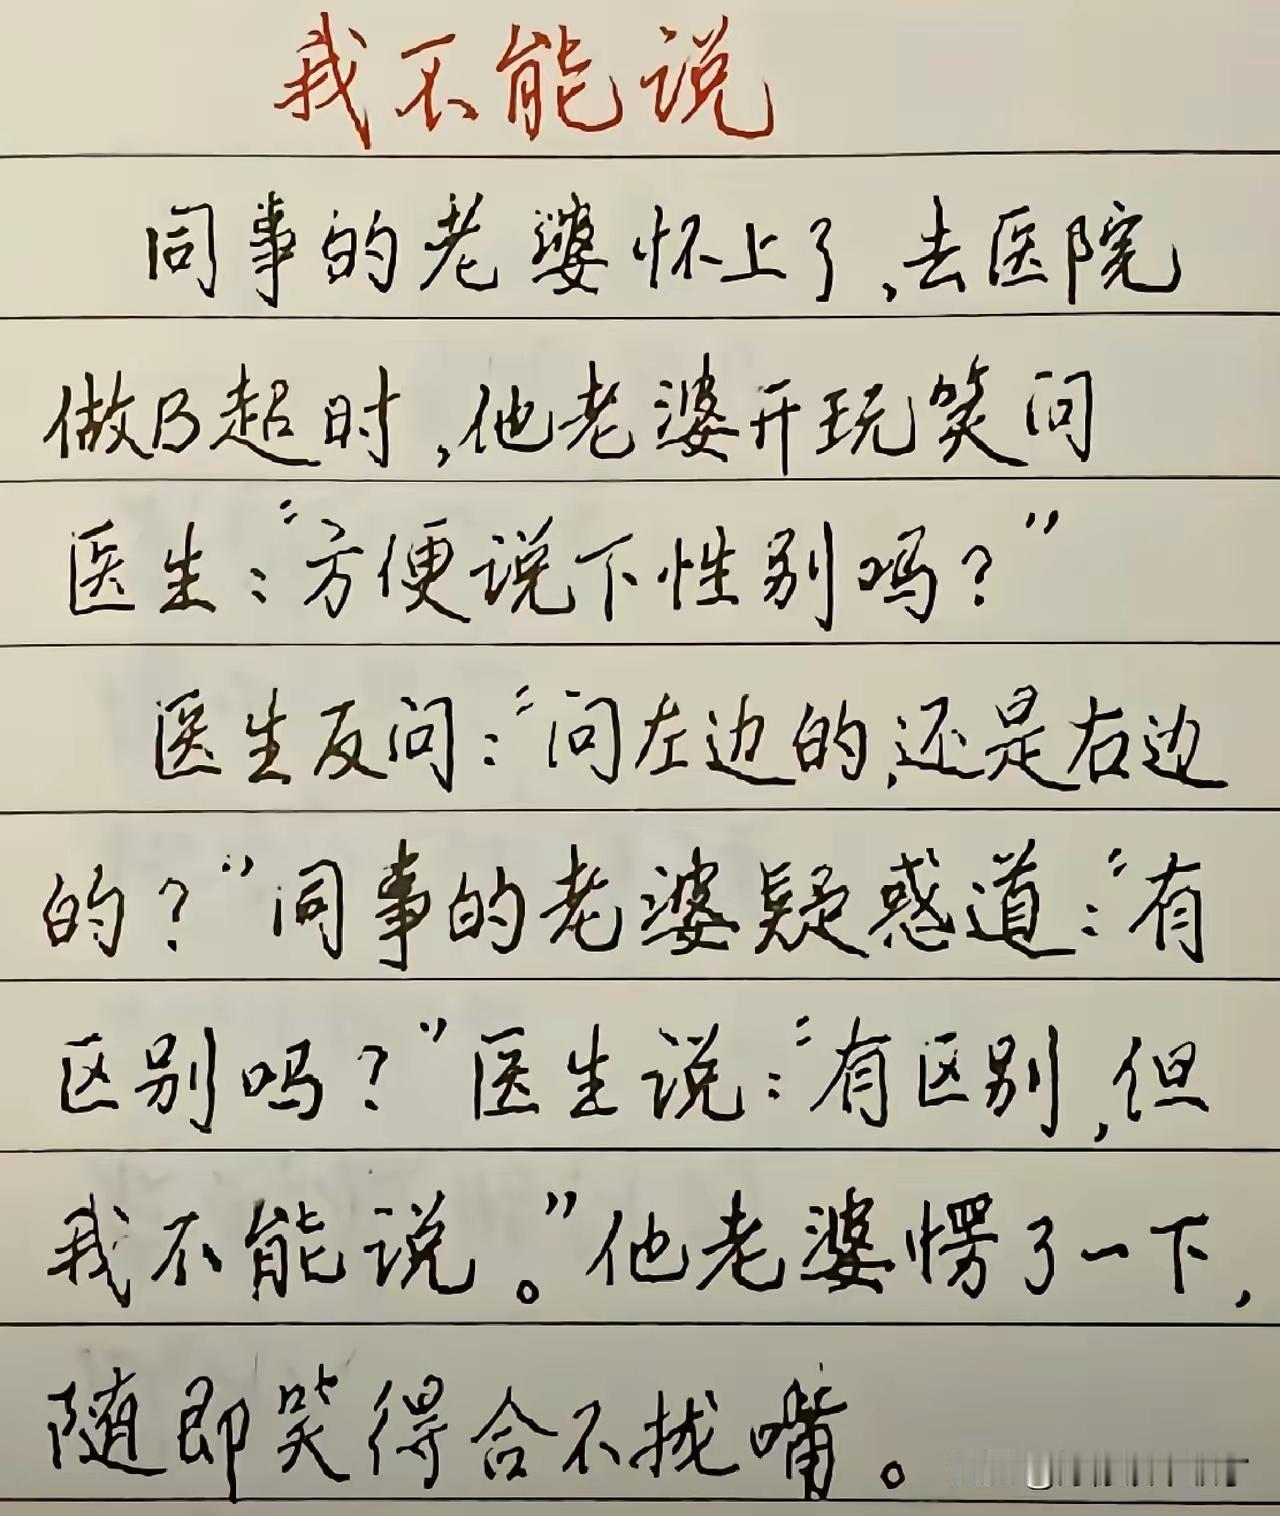 我不能说
同事的老婆怀上了,去医院
做B超时,他老婆开玩笑问
医生:“方便说下性别吗?”
医生反问:“问左边的,还是右边
的?”同事的老婆疑惑道:“有
区别吗?”医生说:“有区别,但
我不能说。”他老婆愣了一下,
随即笑得合不拢嘴。